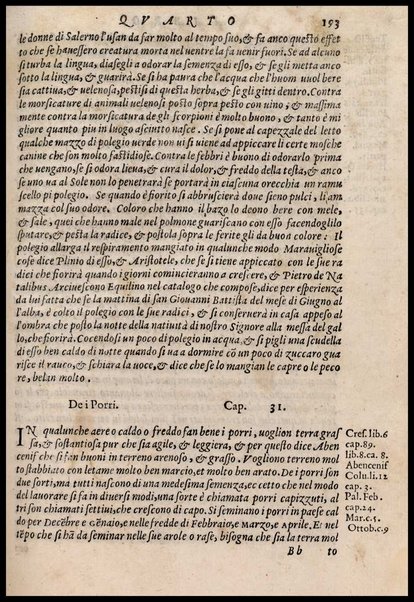 QVARTO 193
le donne di Salerno l'usan da far molto al tempo suo, & fa anco questo effet
to che se hauessero creatura morta nel uentre la fa uenir fuori. Se ad alcuno
si turba la lingua, diasegli a odorar la semenza di esso, & se gli metta anco
sotto la lingua, & guarirà. Se si ha paura che l'acqua che l'huom uuol bere
sia cattiua, & uelenosa, pestisi di questa herba, & se gli gitti dentro. Contra
le morsicature di animali uelenosi posto sopra pesto con uino, & massima
mente contra la morsicatura de gli scorpioni è molto buono, & tanto è mi
gliore quanto piu in luogo asciutto nasce. Se si pone al capezzale del letto
qualche mazzo di polegio uerde non ui si uiene ad appiccare li certe mosche
canine che son molto fastidiose. Contra le febbri è buono di odorarlo prima
che uengano, se si odora lieua, & cura il dolor, & freddo della testa, & anco
se uno ua al Sole non lo penetrarà se portarà in ciascuna orecchia un ramu
scello pi polegio. Se quando è fiorito si abbrusciarà doue sieno pulci, li am
mazza col suo odore. Coloro che hanno il bazo lo deono bere con mele,
& sale, quei che hanno male nel polmone guariscano con esso facendoglilo
sputare, & pesta la radice, & postola sopra le ferite gli da buon colore. Il
polegio allarga il respiramento mangiato in qualunche modo Marauigliose
cose dice Plinio di esso, & Aristotele, che se si tiene appiccato con le sue ra
dici che fiorirà quando i giorni comincieranno a crescere, & Pietro de Na
talibus Arciuescouo Equilino nel catalogo che compose, dice per esperienza
da lui fatta che se la mattina di san Giouanni Battista del mese di Giugno al
l'alba, è colto il polegio con le sue radici, & si conseruerà in casa appeso al
l'ombra che posto la notte della natiuità di nostro Signore alla messa del gal
lo, che fiorirà. Cocendosi un poco di polegio in acqua, & si pigli una scudella
di esso ben caldo di notte quando si ua a dormire cō un poco di zuccaro gua
risce il rauco, & schiara la uoce, & dice che se lo mangian le capre o le peco
re, belan molto.
De i Porri. Cap. 31.
IN qualunche aere o caldo o freddo fan bene i porri, uoglion terra gras
sa, & sostantiosa pur che sia agile, & leggiera, & per questo dice Aben
cenif che si fan buoni in terreno arenoso, & grasso. Vogliono terreno mol
to stabbiato con letame molto ben marcio, et molto ben arato. De i porri son
due sorti, ma tutti nascono di una medesima semenza, ecccetto che nel modo
del lauorare si fa in diuersi modi, una sorte è chiamata porri capizzuti, al
tri son chiamati settiui, che crescono di capo. Si seminano i porri in paese cal
do per Decēbre e Gēnaio, e nelle fredde di Febbraio, e Marzo, e Aprile. Et nel
tēpo che si hà da seminar nelle sue arole o rase, bisogna che sia la terra mol
Bb to
Cref. lib. 6
cap. 89.
lib. 8. ca. 8.
Abencenif
Colu. li. 12
cap. 3.
Pal. Feb.
cap. 24.
Mar. c. 5.
Ottob. c. 9